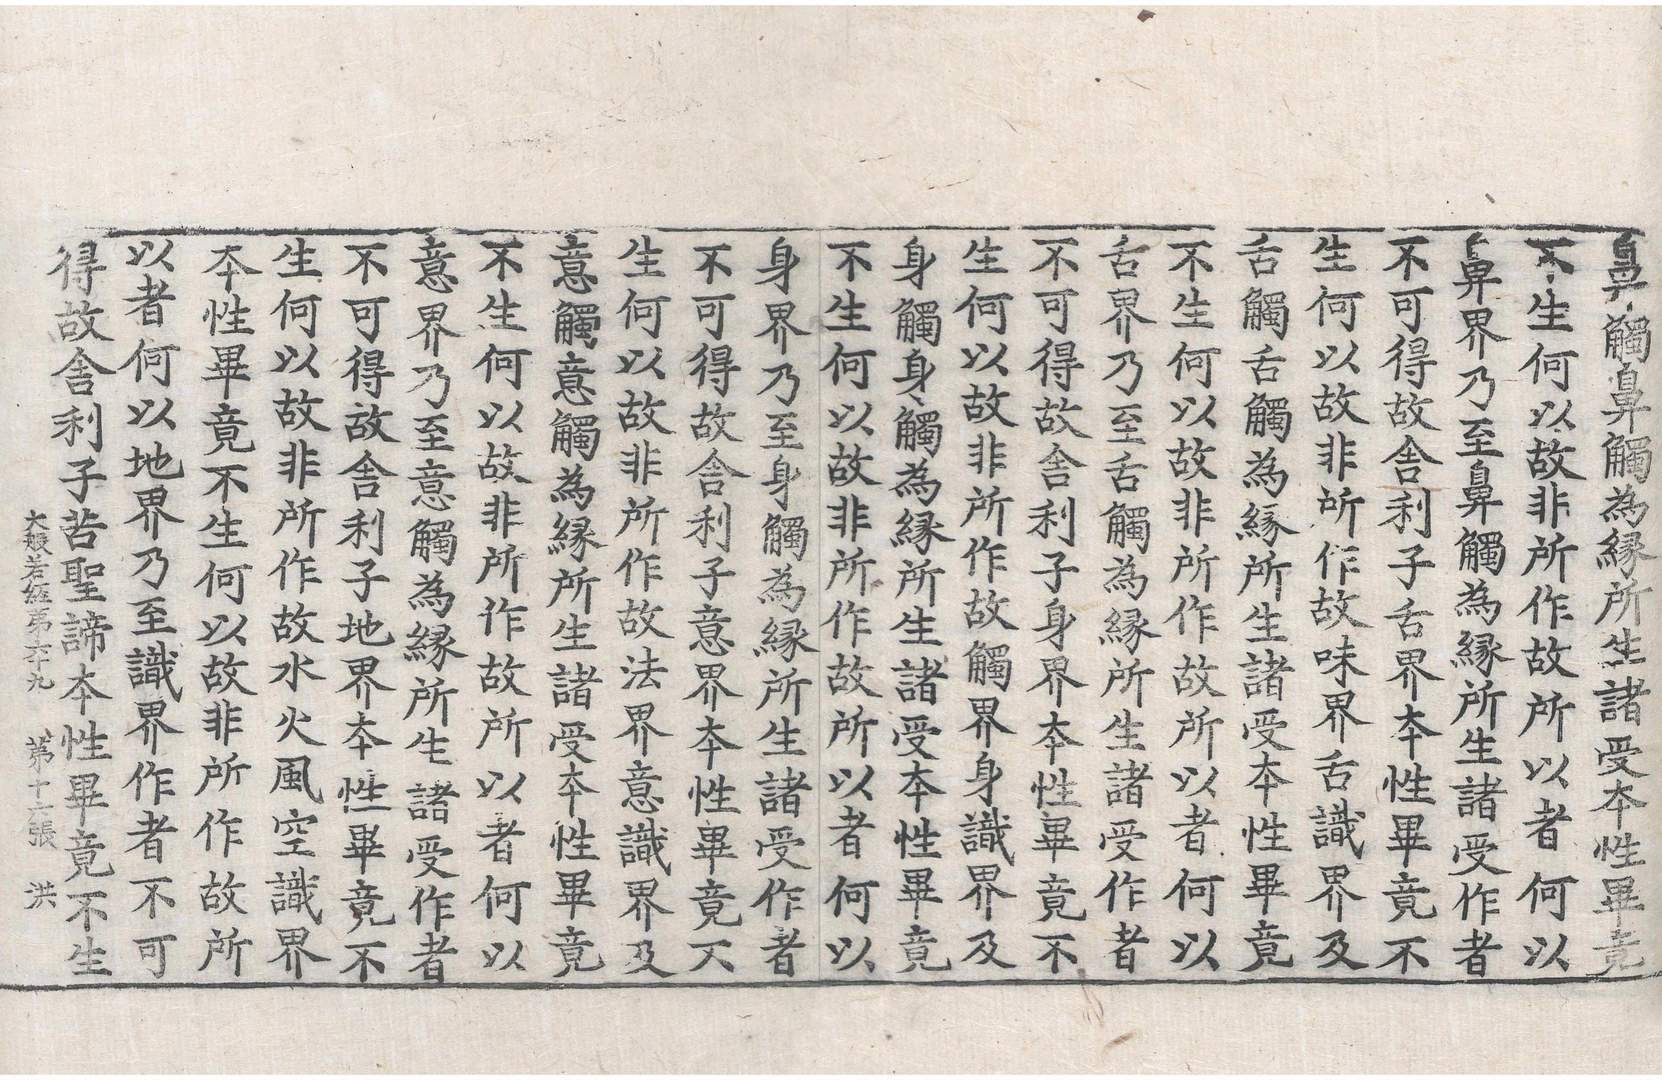 鼻觸鼻觸為縁所生諸受本性畢竟
不生何以故非所作故所以者何以
鼻界乃至鼻觸為縁所生諸受作者
不可得故舍利子舌界本性畢竟不
生何以故非所作故味界舌識界及
舌觸舌觸為縁所生諸受本性畢竟
不生何以故非所作故所以者何以
舌界乃至舌觸為縁所生諸受作者
不可得故舍利子身界本性畢竟不
生何以故非所作故觸界身識界及
身觸身觸為縁所生諸受本性畢竟
不生何以故非所作故所以者何以
身界乃至身觸為縁所生諸受作者
不可得故舍利子意界本性畢竟不
生何以故非所作故法界意識界及
意觸意觸為縁所生諸受本性畢竟
不生何以故非所作故所以者何以
意界乃至意觸為縁所生諸受作者
不可得故舍利子地界本性畢竟不
生何以故非所作故水火風空識界
本性畢竟不生何以故非所作故所
以者何以地界乃至識界作者不可
得故舍利子苦聖諦本性畢竟不生
大般若經第六十九 第十六張 洪